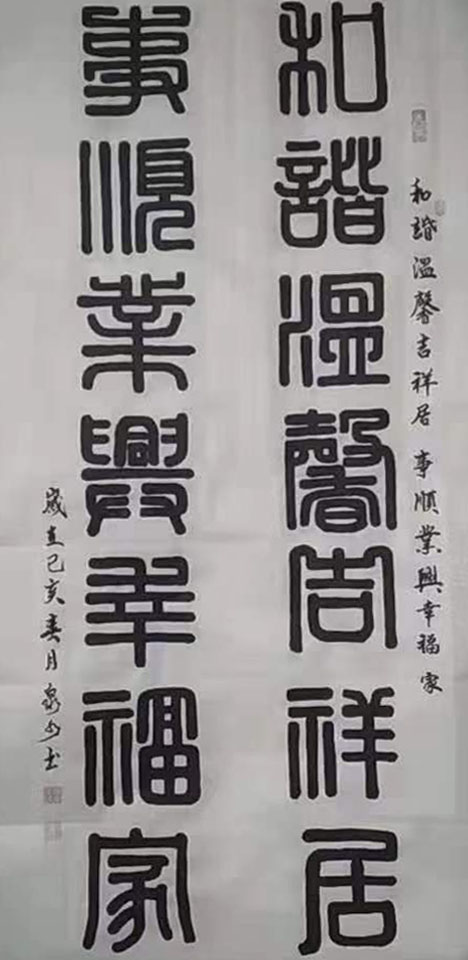 和諧溫馨吉祥居 事順業興幸福家
和諧溫馨吉祥居
事順業興幸福家
歲在己亥春月泉少书